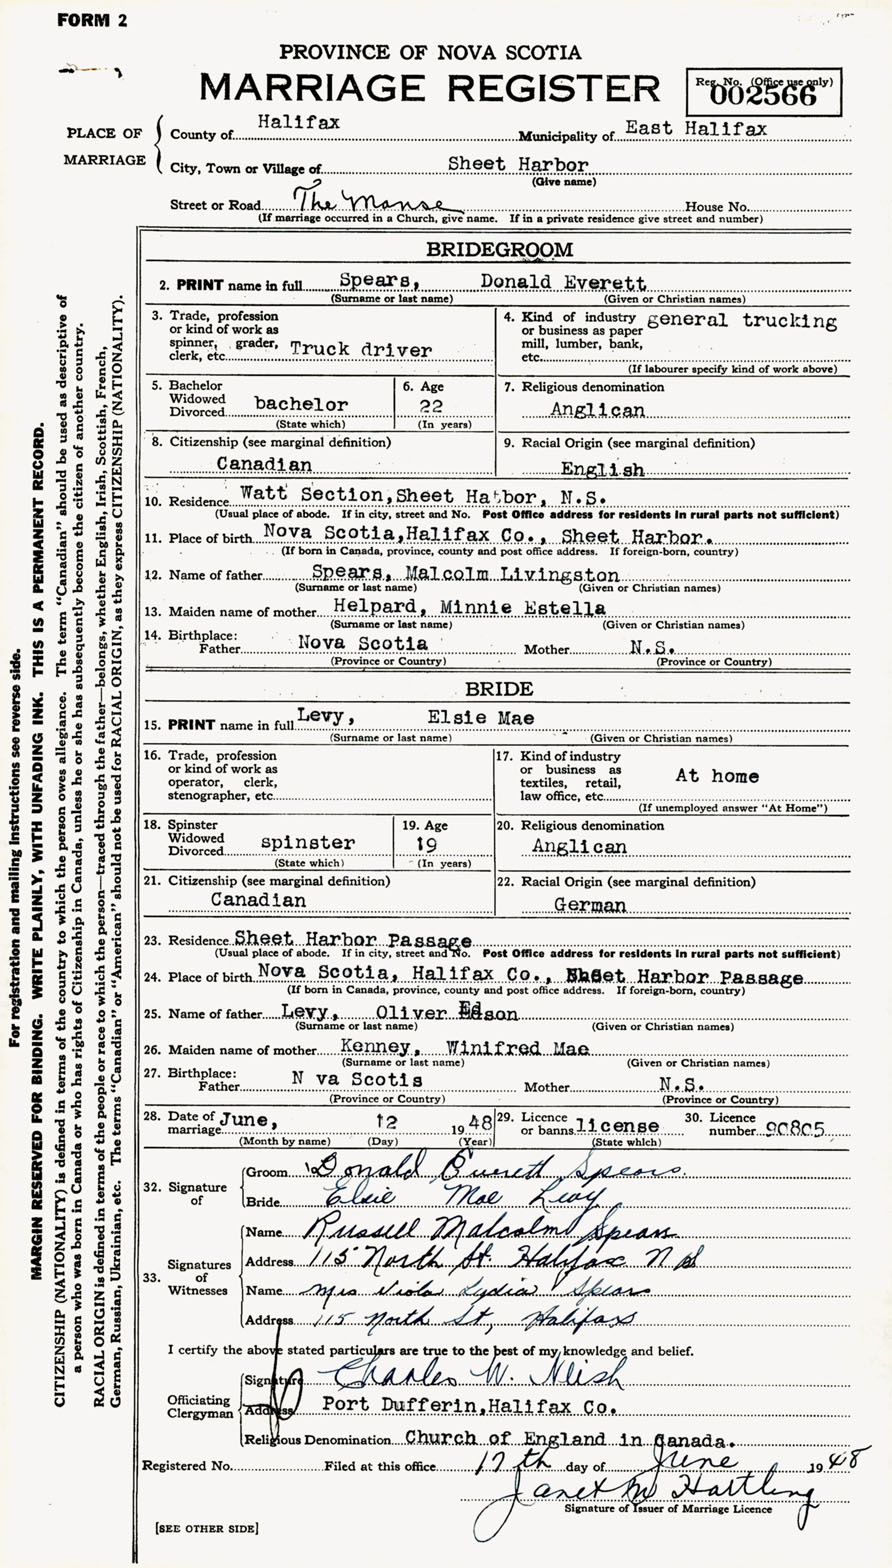 FORM 2
PROVINCE OF NOVA SCOTIA
MARRIAGE REGISTER
Reg. No. (Office use only)
002566
PLACE OF MARRIAGE
County of Halifax Municipality of East Halifax
City, Town or Village of Sheet Harbor
(Give name)
Street or Road The Manse House No.
(If marriage occurred in a Church, give name. If in a private residence give street and number)
BRIDEGROOM
2. PRINT name in full Spears, Donald Everett
(Surname or last name) (Given or Christian names)
3. Trade, profession
or kind of work as
spinner, grader,
clerk, etc. Truck driver
4. Kind of industry general trucking
or business as paper
mill, lumber, bank,
etc.
(If labourer specify kind of work above)
5. Bachelor
Widowed
Divorced bachelor
(State which)
6. Age
22
(In years)
7. Religious denomination
Anglican
8. Citizenship (see marginal definition)
Canadian
9. Racial Origin (see marginal definition)
English
10. Residence Watt Section, Sheet Harbor, N.S.
(Usual place of abode. If in city, street and No. Post Office address for residents in rural parts not sufficient)
11. Place of birth Nova Scotia, Halifax Co., Sheet Harbor.
(If born in Canada, province, county and post office address. If foreign-born, country)
12. Name of father Spears, Malcolm Livingston
(Surname or last name) (Given or Christian names)
13. Maiden name of mother Helpard, Minnie Estella
(Surname or last name) (Given or Christian names)
14. Birthplace:
Father Nova Scotia Mother N.S.
(Province or Country) (Province or Country)
BRIDE
15. PRINT name in full Levy, Elsie Mae
(Surname or last name) (Given or Christian names)
16. Trade, profession
or kind of work as
operator, clerk,
stenographer, etc.
17. Kind of industry
or business as
textiles, retail,
law office, etc. At home
(If unemployed answer "At Home")
18. Spinster
Widowed
Divorced spinster
(State which)
19. Age
19
(In years)
20. Religious denomination
Anglican
21. Citizenship (see marginal definition)
Canadian
22. Racial Origin (see marginal definition)
German
23. Residence Sheet Harbor Passage
(Usual place of abode. If in city, street and No. Post Office address for residents in rural parts not sufficient)
24. Place of birth Nova Scotia, Halifax Co., Sheet Harbor Passage
(If born in Canada, province, county and post office address. If foreign-born, country)
25. Name of father Levy, Oliver Edson
(Surname or last name) (Given or Christian names)
26. Maiden name of mother Kenney, Winifred Mae
(Surname or last name) (Given or Christian names)
27. Birthplace:
Father N va Scotis Mother N.S.
(Province or Country) (Province or Country)
28. Date of marriage June, 12 1948
(Month by name) (Day) (Year)
29. Licence or banns license
(State which)
30. Licence number 90805
32. Signature of
Groom Donald Everett Spears
Bride Elsie Mae Levy
33. Signatures of Witnesses
Name Russell Malcolm Spears
Address 115 North St. Halifax N S
Name Mrs Viola Lydia Spears
Address 115 North St, Halifax
I certify the above stated particulars are true to the best of my knowledge and belief.
Officiating Clergyman
Signature Charles W. Neish
Address Port Dufferin, Halifax Co.
Religious Denomination Church of England in Canada.
Registered No. Filed at this office 17th day of June 1948
Janet M Hartling
Signature of Issuer of Marriage Licence
[SEE OTHER SIDE]
For registration and mailing instructions see reverse side.
MARGIN RESERVED FOR BINDING. WRITE PLAINLY, WITH UNFADING INK. THIS IS A PERMANENT RECORD.
CITIZENSHIP (NATIONALITY) is defined in terms of the country to which the person owes allegiance. The term "Canadian" should be used as descriptive of
a person who was born in Canada or who has rights of Citizenship in Canada, unless he or she has subsequently become the citizen of another country.
RACIAL ORIGIN is defined in terms of the people or race to which the person—traced through the father—belongs, whether English, Irish, Scottish, French,
German, Russian, Ukrainian, etc. The terms "Canadian" or "American" should not be used for RACIAL ORIGIN, as they express CITIZENSHIP (NATIONALITY).